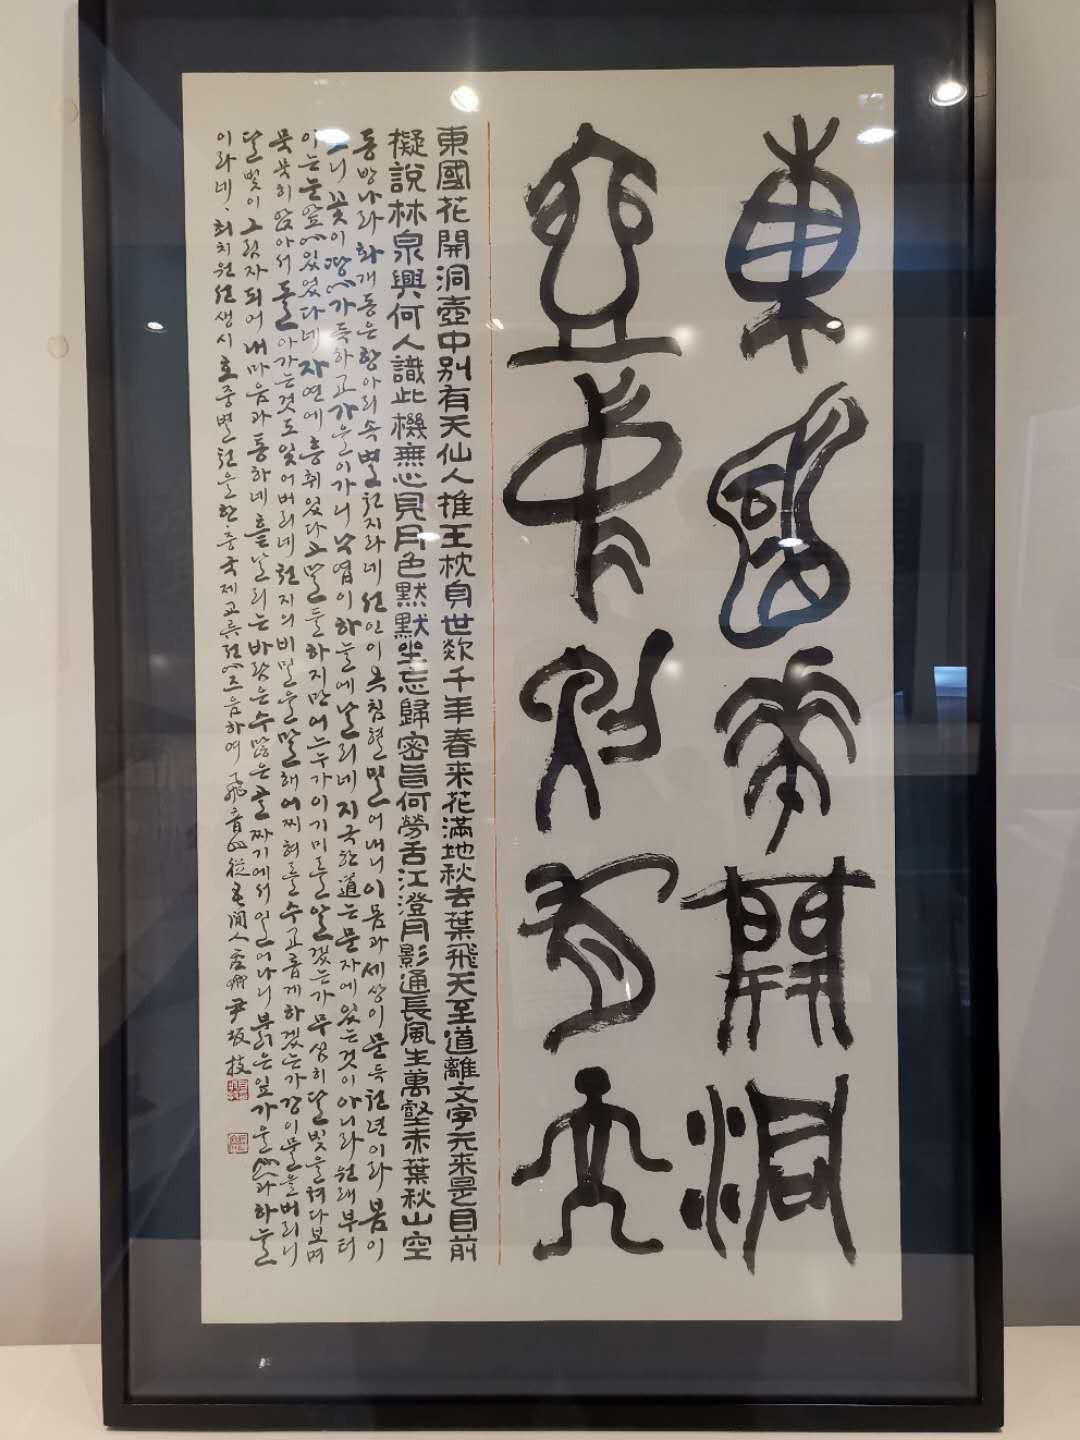 東國花開洞
壺中別有天
東國花開洞壺中別有天仙人推玉枕身世欻千年春来花滿地秋去葉飛天至道離文字元来是目前
擬說林泉興何人識此機無心見月色默默坐忘歸密旨何勞舌江澄月影通長風生萬壑赤葉秋山空
동방나라 화개동은 항아리 속 별천지라네 선인이 옥침 밀어내니 이 몸과 세상이 문득 천년이라 봄이
오니 꽃이 땅에 가득하고 가을이 가니 낙엽이 하늘에 날리네 지극한 道는 문자에 있는 것이 아니라 원래부터
이는 눈앞에 있었다네 자연에 흥취있다 그말들 하지만 어느 누가 이 기미를 알겠는가 무심히 달빛을 쳐다보며
묵묵히 앉아서 돌아가는 것도 잊어버리네 천지의 비밀을 말해 어찌 혀를 수고롭게 하겠는가 강이 물을 버리니
달빛이 그림자 되어 내 마음과 통하네 흩날리는 바람은 수많은 골짜기에서 일어나니 붉은 잎 가을 산과 하늘
이라네. 최치원선생시 호중별천을 한·중국제교류전에 즈음하여 尹